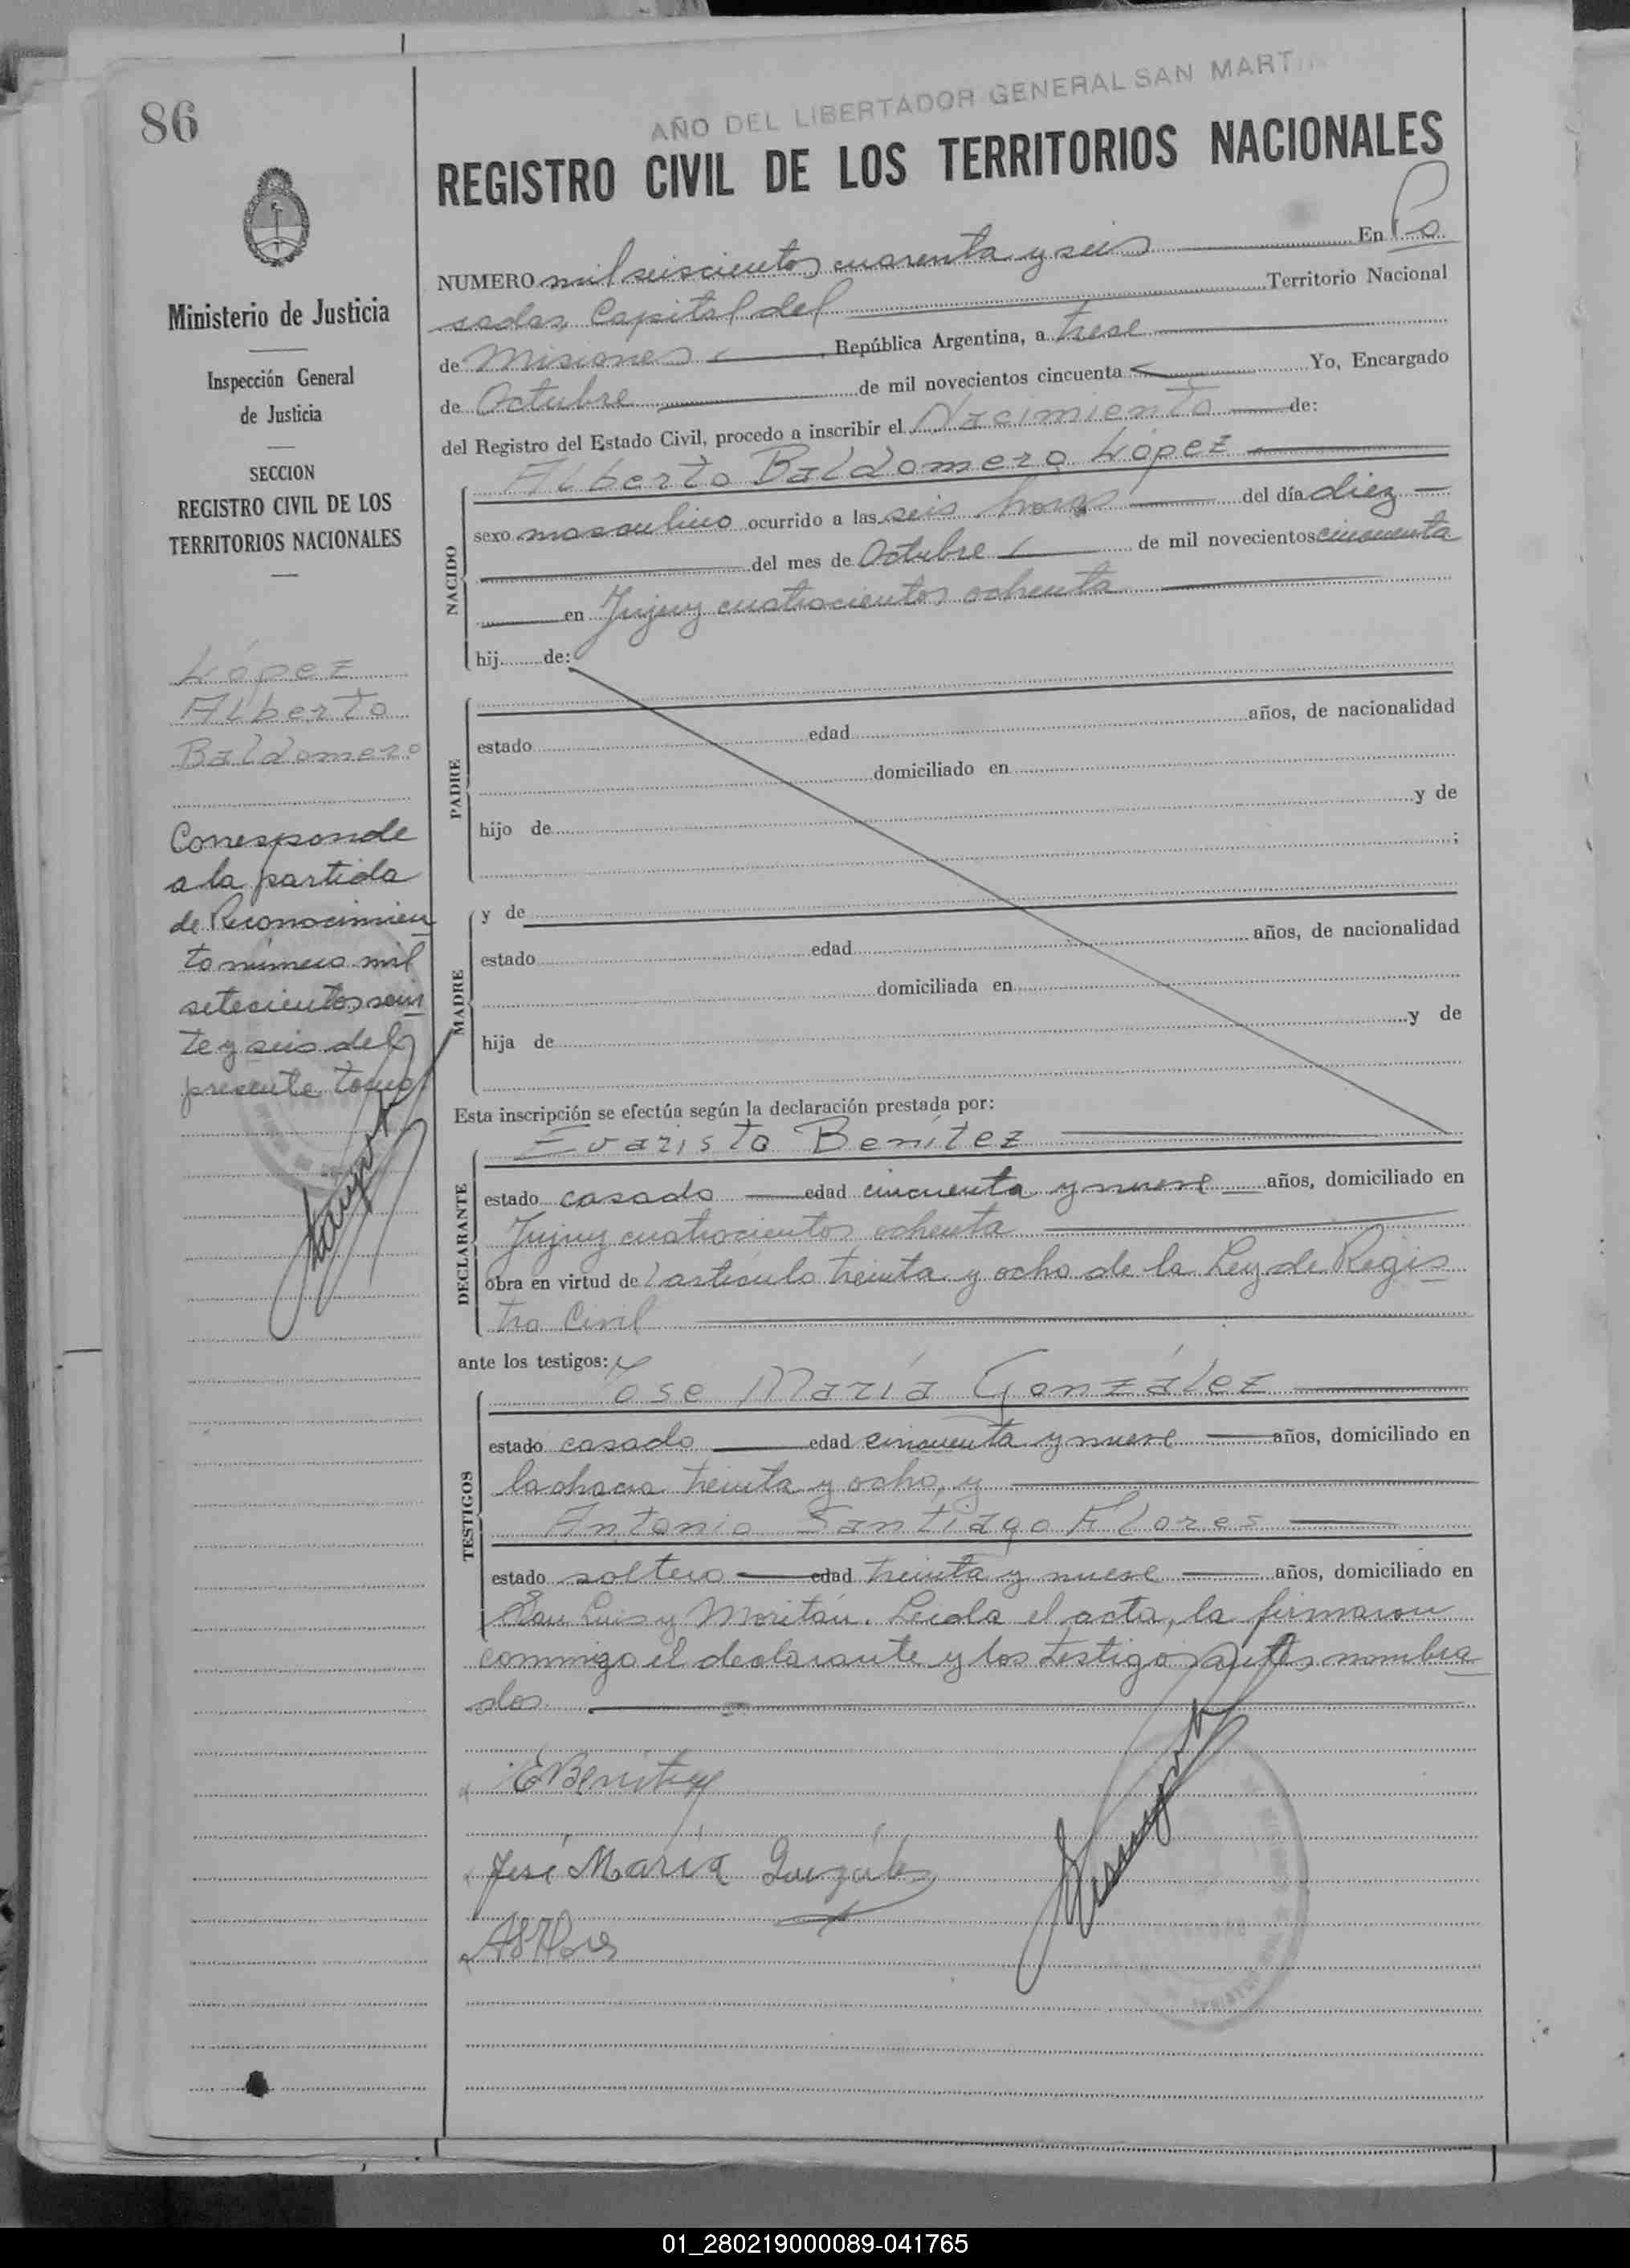 86
AÑO DEL LIBERTADOR GENERAL SAN MARTIN
REGISTRO CIVIL DE LOS TERRITORIOS NACIONALES
NUMERO mil seiscientos cuarenta y seis En Po
sadas, Capital del Territorio Nacional
de Misiones, República Argentina, a trece
de Octubre de mil novecientos cincuenta Yo, Encargado
del Registro del Estado Civil, procedo a inscribir el Nacimiento de:
Alberto Baldomero López
NACIDO
sexo masculino ocurrido a las seis horas del día diez
del mes de Octubre de mil novecientos cincuenta
en Jujuy cuatrocientos ochenta
hij de:
PADRE
estado edad años, de nacionalidad
domiciliado en
hijo de y de
;
MADRE
y de
estado edad años, de nacionalidad
domiciliada en
hija de y de
Esta inscripción se efectúa según la declaración prestada por:
Evaristo Benítez
DECLARANTE
estado casado edad cincuenta y nueve años, domiciliado en
Jujuy cuatrocientos ochenta
obra en virtud del artículo treinta y ocho de la Ley de Regis
tro Civil
ante los testigos:
José María González
TESTIGOS
estado casado edad cincuenta y nueve años, domiciliado en
la chacra treinta y ocho, y
Antonio Santiago Flores
estado soltero edad treinta y nueve años, domiciliado en
San Luis y Moritán. Leida el acta, la firmaron
conmigo el declarante y los testigos antes nombra
dos.
EBenitez
José María González
ASFlores
Ministerio de Justicia
Inspección General
de Justicia
SECCION
REGISTRO CIVIL DE LOS
TERRITORIOS NACIONALES
López
Alberto
Baldomero
Corresponde
a la partida
de Reconocimien
to número mil
setecientos vein
te y seis del
presente tomo
01_280219000089-041765